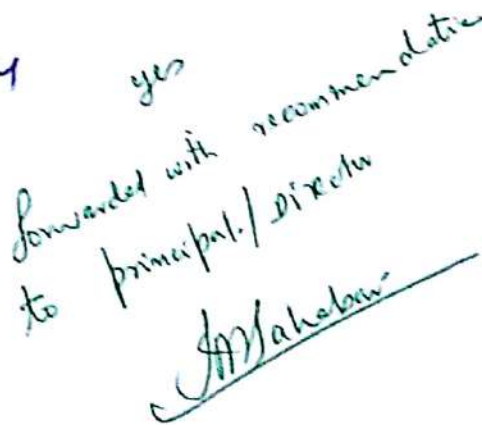 yes
forwarded with recommendation
to principal./Director